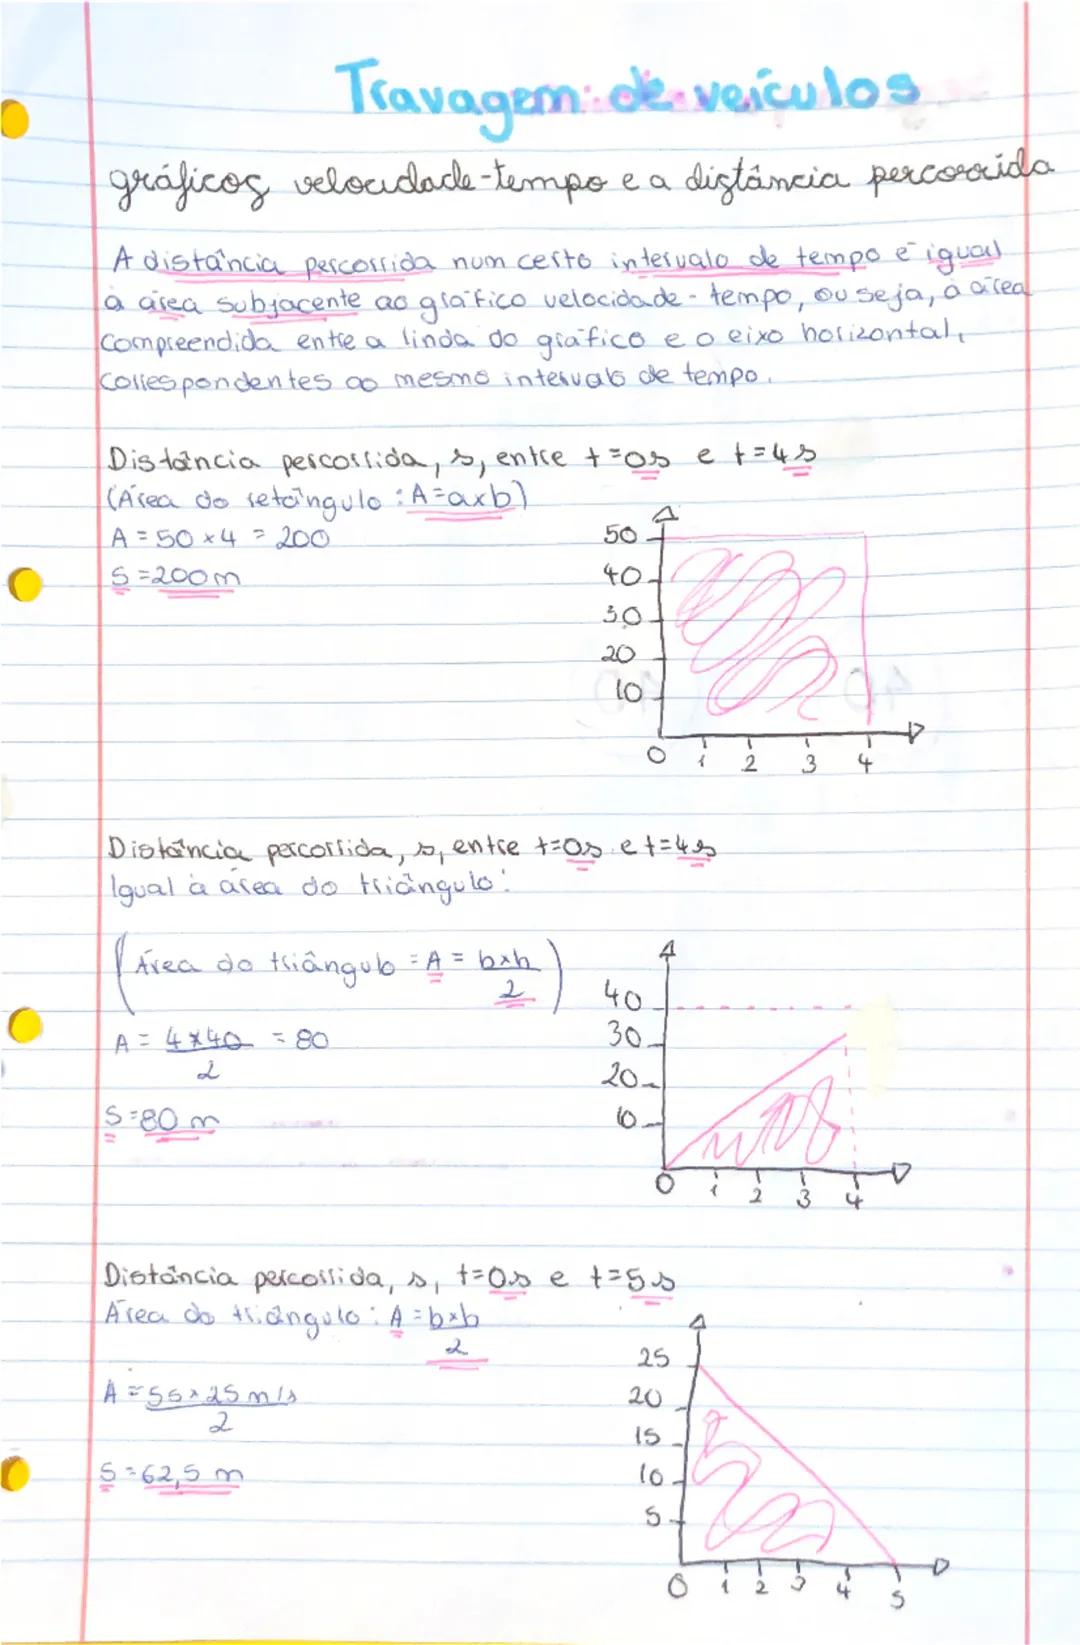 Travagem de veículos
gráficos velocidade-tempo e a distância percorrida
A distância percorrida num certo intervalo de tempo é igual
à área subjacente ao gráfico velocidade - tempo, ou seja, à área
compreendida entre a linda do gráfico e o eixo horizontal,
correspondentes ao mesmo intervalo de tempo.
Distância percorrida, s, entre t=0s e t=4s
(Área do retângulo : A=axb)
A = 50 x 4 = 200
S=200m
50
40
30
20
10
0 1 2 3 4
Distância percorrida, s, entre t=0s e t=4s
Igual à área do triângulo:
(Área do triângulo = A = bxh
2)
A = 4x40 = 80
2
S=80 m
40
30
20
10
0 1 2 3 4
Distância percorrida, s, t=0s e t=5s
Área do triângulo : A = bxh
2
A = 5s x 25 m/s
2
S=62,5 m
25
20
15
10
5
0 1 2 3 4 5